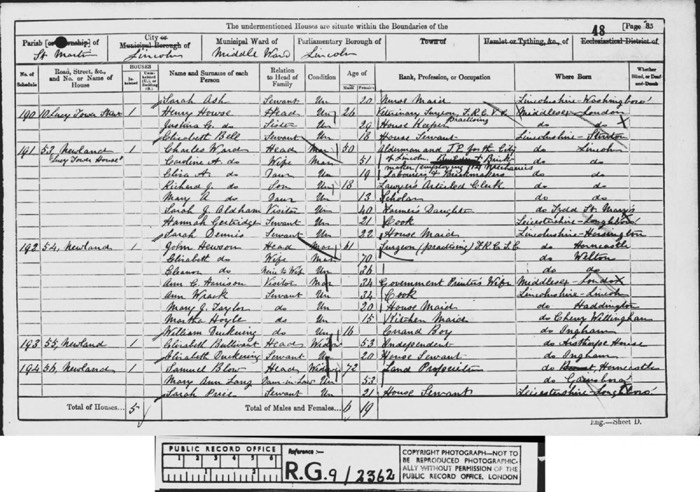 The undermentioned Houses are situate within the Boundaries of the
48 [Page 35
Parish [or Township] of St. Martin
City or Municipal Borough of Lincoln
Municipal Ward of Middle Ward
Parliamentary Borough of Lincoln
Town of
Hamlet or Tything, &c., of
Ecclesiastical District of
No. of Schedule
Road, Street, &c., and No. or Name of House
HOUSES
Inhabited
Name and Surname of each Person
Relation to Head of Family
Condition
Age of
Males
Females
Rank, Profession, or Occupation
Where Born
Whether Blind, or Deaf-and-Dumb
Sarah Ash Servant Un 20 Nurse Maid Lincolnshire
190 10 1 Henry Howse Head Un 26 Veterinary Surgeon, practising Middlesex London
G. do Sister Un 29 House Keeper do do
Elizabeth Bell Servant Un 18 House Servant Lincolnshire
191 53, Newland 1 Charles Ward Head Mar 50 Alderman and J.P. for the City do Lincoln
Caroline A. do Wife Mar 51 of Lincoln Brickmaker employing do do
Eliza A. do Daur Un 19 Labourers do do
Richard J. do Son Un 18 Lawyer's Articled Clerk do do
Mary A. do Daur Un 13 Scholar do do
Sarah J. Aldham Visitor Un 40 Farmer's Daughter do Tydd St. Mary's
Hannah Servant Un 21 Cook Leicestershire
Sarah Dennis Servant Un 22 House Maid Lincolnshire
192 54, Newland 1 John Hewson Head Mar 61 Surgeon (practising) do Horncastle
Elizabeth do Wife Mar 70 do
Eleanor do Niece to Wife Un 26 do do
Ann C. Harrison Visitor Mar 34 Government Printer's Wife Middlesex London
Ann Servant Un 34 Cook Lincolnshire Lincoln
Mary J. Taylor do Un 20 House Maid do Waddington
Martha Hoyle do Un 15 Kitchen Maid do Cherry Willingham
William Duckering do Un 16 Errand Boy do Ingham
193 55, Newland 1 Elizabeth Head 53 Independent do House
Elizabeth Duckering Servant Un 20 House Servant do Ingham
194 56, Newland 1 Samuel Blow Head Widower 72 Land Proprietor do Horncastle
Mary Ann Long Un 53 do
Sarah Servant Un 21 House Servant Leicestershire
Total of Houses... 5
Total of Males and Females... 6 19
Eng.—Sheet D.
PUBLIC RECORD OFFICE
1 2 3 4 5 6
Reference:-
R.G. 9/2362
COPYRIGHT PHOTOGRAPH—NOT TO BE REPRODUCED PHOTOGRAPHICALLY WITHOUT PERMISSION OF THE PUBLIC RECORD OFFICE, LONDON